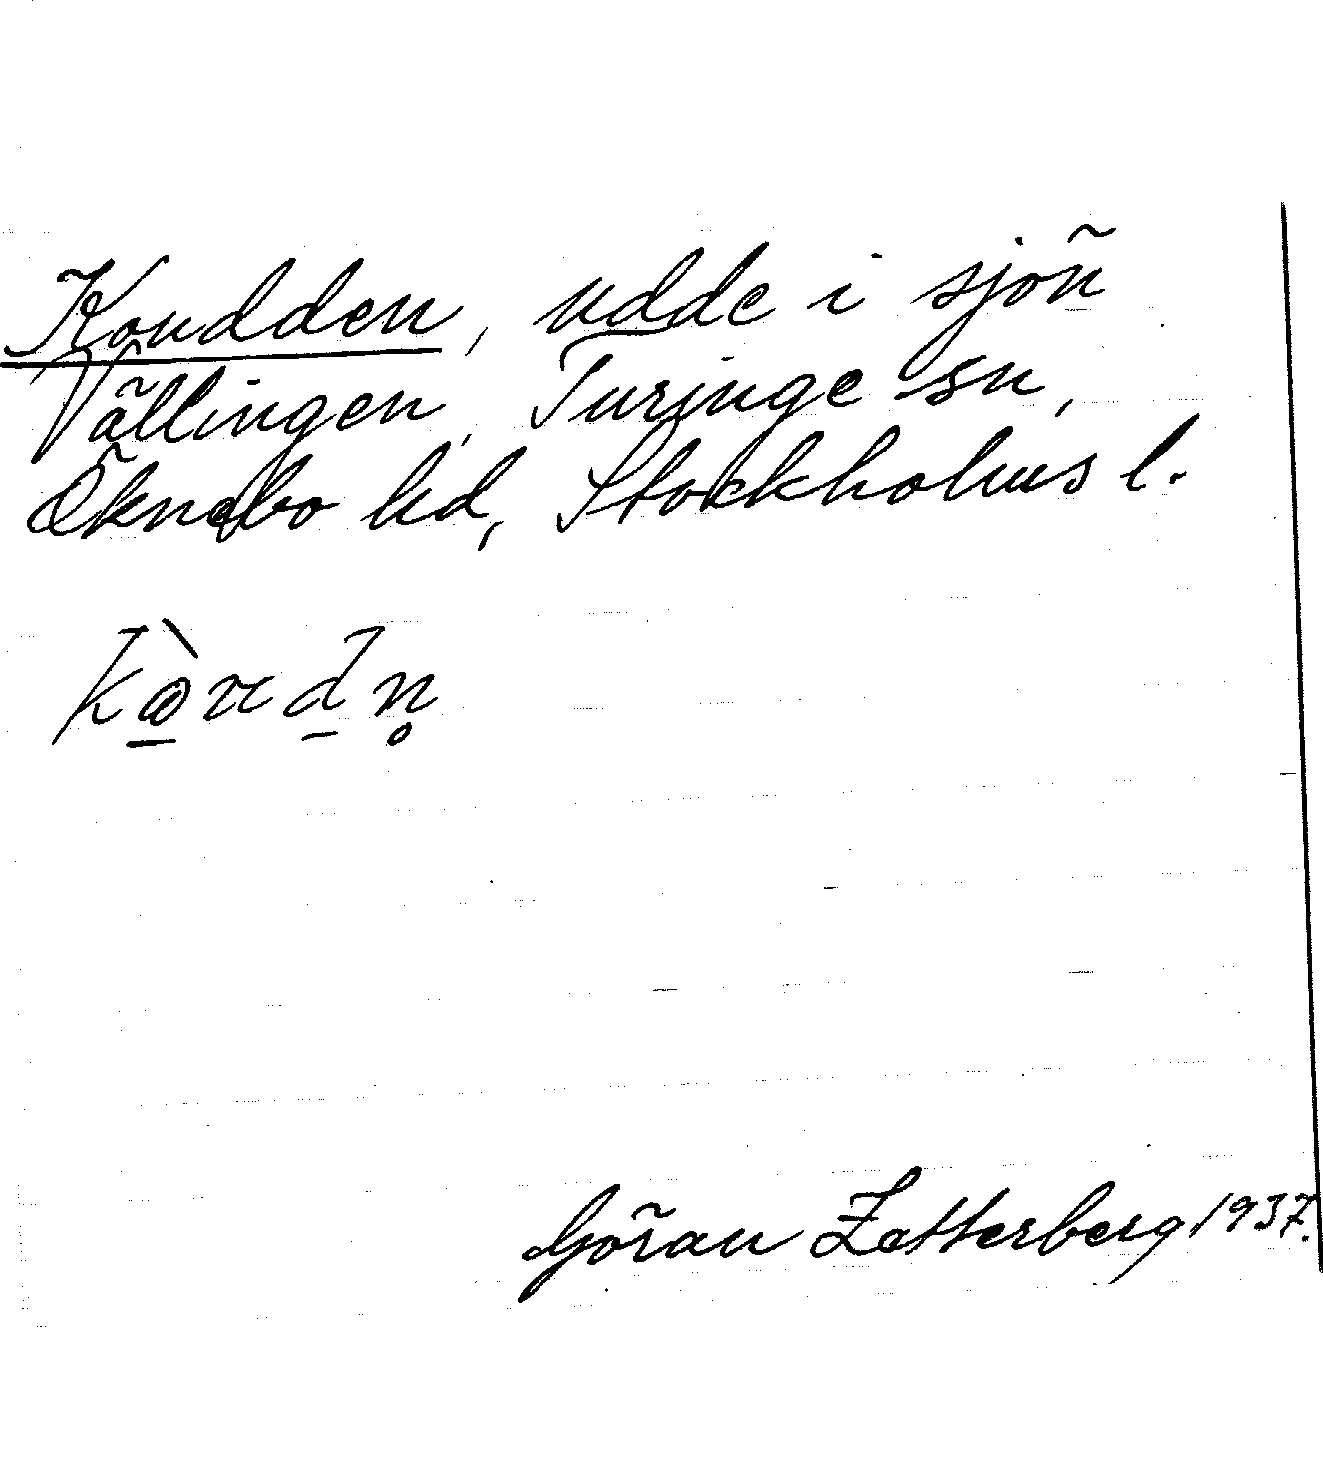 Koudden, udde i sjön
Vällingen, Turinge sn,
Öknebo hd, Stockholms l.
Göran Zetterberg 1937.